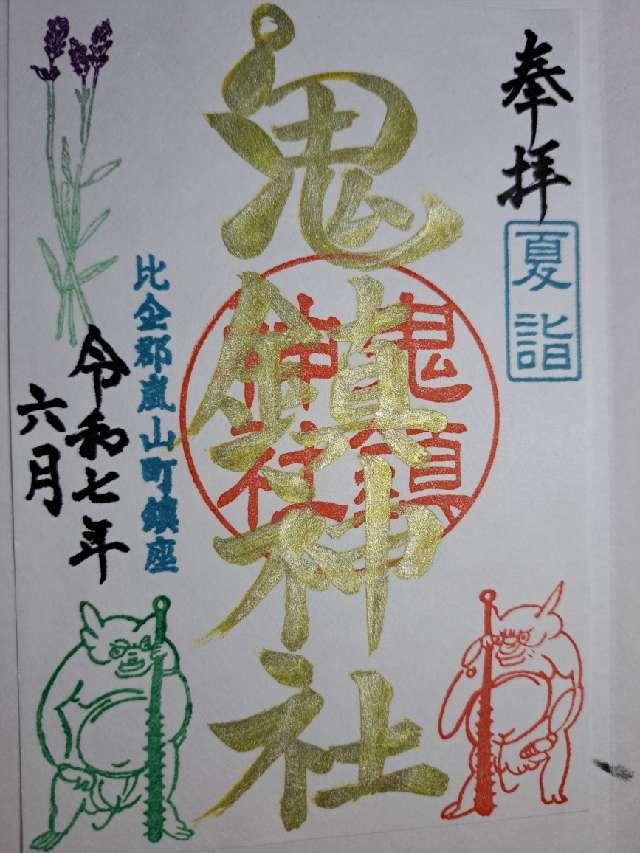 奉拝
夏詣
鬼鎮神社
鬼鎮
神社
比企郡嵐山町鎮座
令和七年
六月